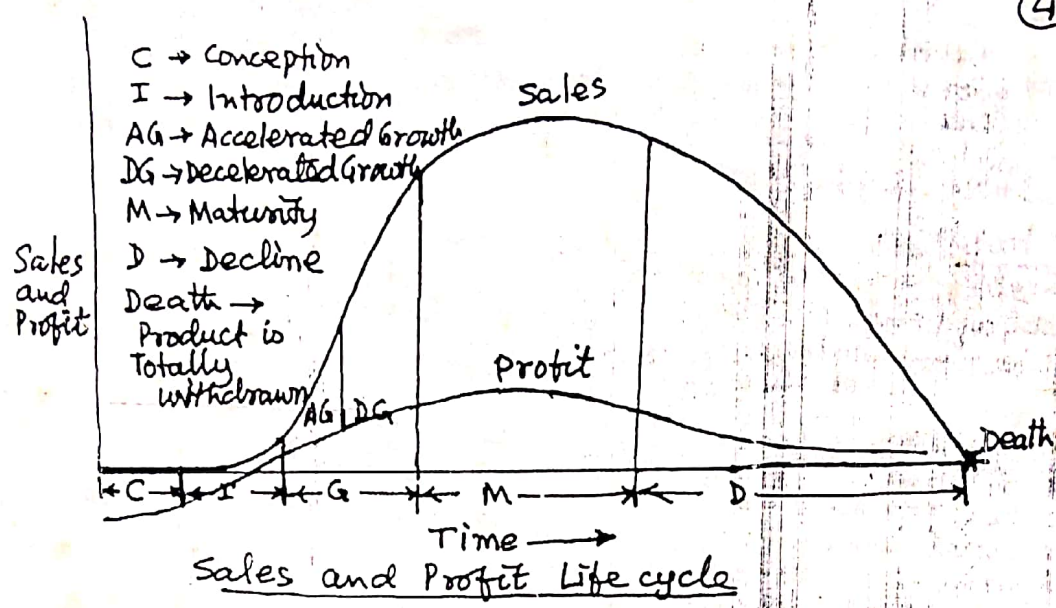 4
C → Conception
I → Introduction
AG → Accelerated Growth
DG → Decelerated Growth
M → Maturity
D → Decline
Death →
Product is
Totally
withdrawn
Sales
and
Profit
Sales
Profit
AG DG
Death
C I G M D
Time →
Sales and Profit Life cycle